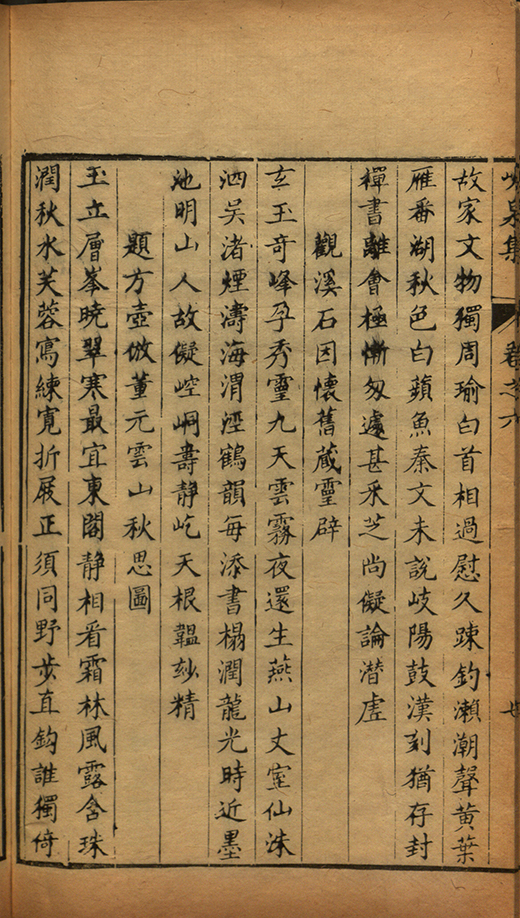 泉集
卷之六
故家文物獨周瑜白首相過慰久踈釣瀨潮聲黄葉
雁番湖秋色白蘋魚秦文未説岐陽鼓漢刻猶存封
禪書離會極慚匆遽甚采芝尚儗論潜虚
觀溪石因懷舊蔵靈辟
玄玉奇峰孕秀靈九天雲霧夜還生燕山丈室仙洙
泗吴渚煙濤海渭涇鶴韻每添書榻潤龍光時近墨
池明山人故儗崆峒壽静屹天根韞玅精
題方壺倣董元雲山秋思圖
玉立層峯曉翠寒最宜東閣静相看霜林風露含珠
潤秋水芙蓉寫練寛折屐正須同野歩直鈎誰獨倚